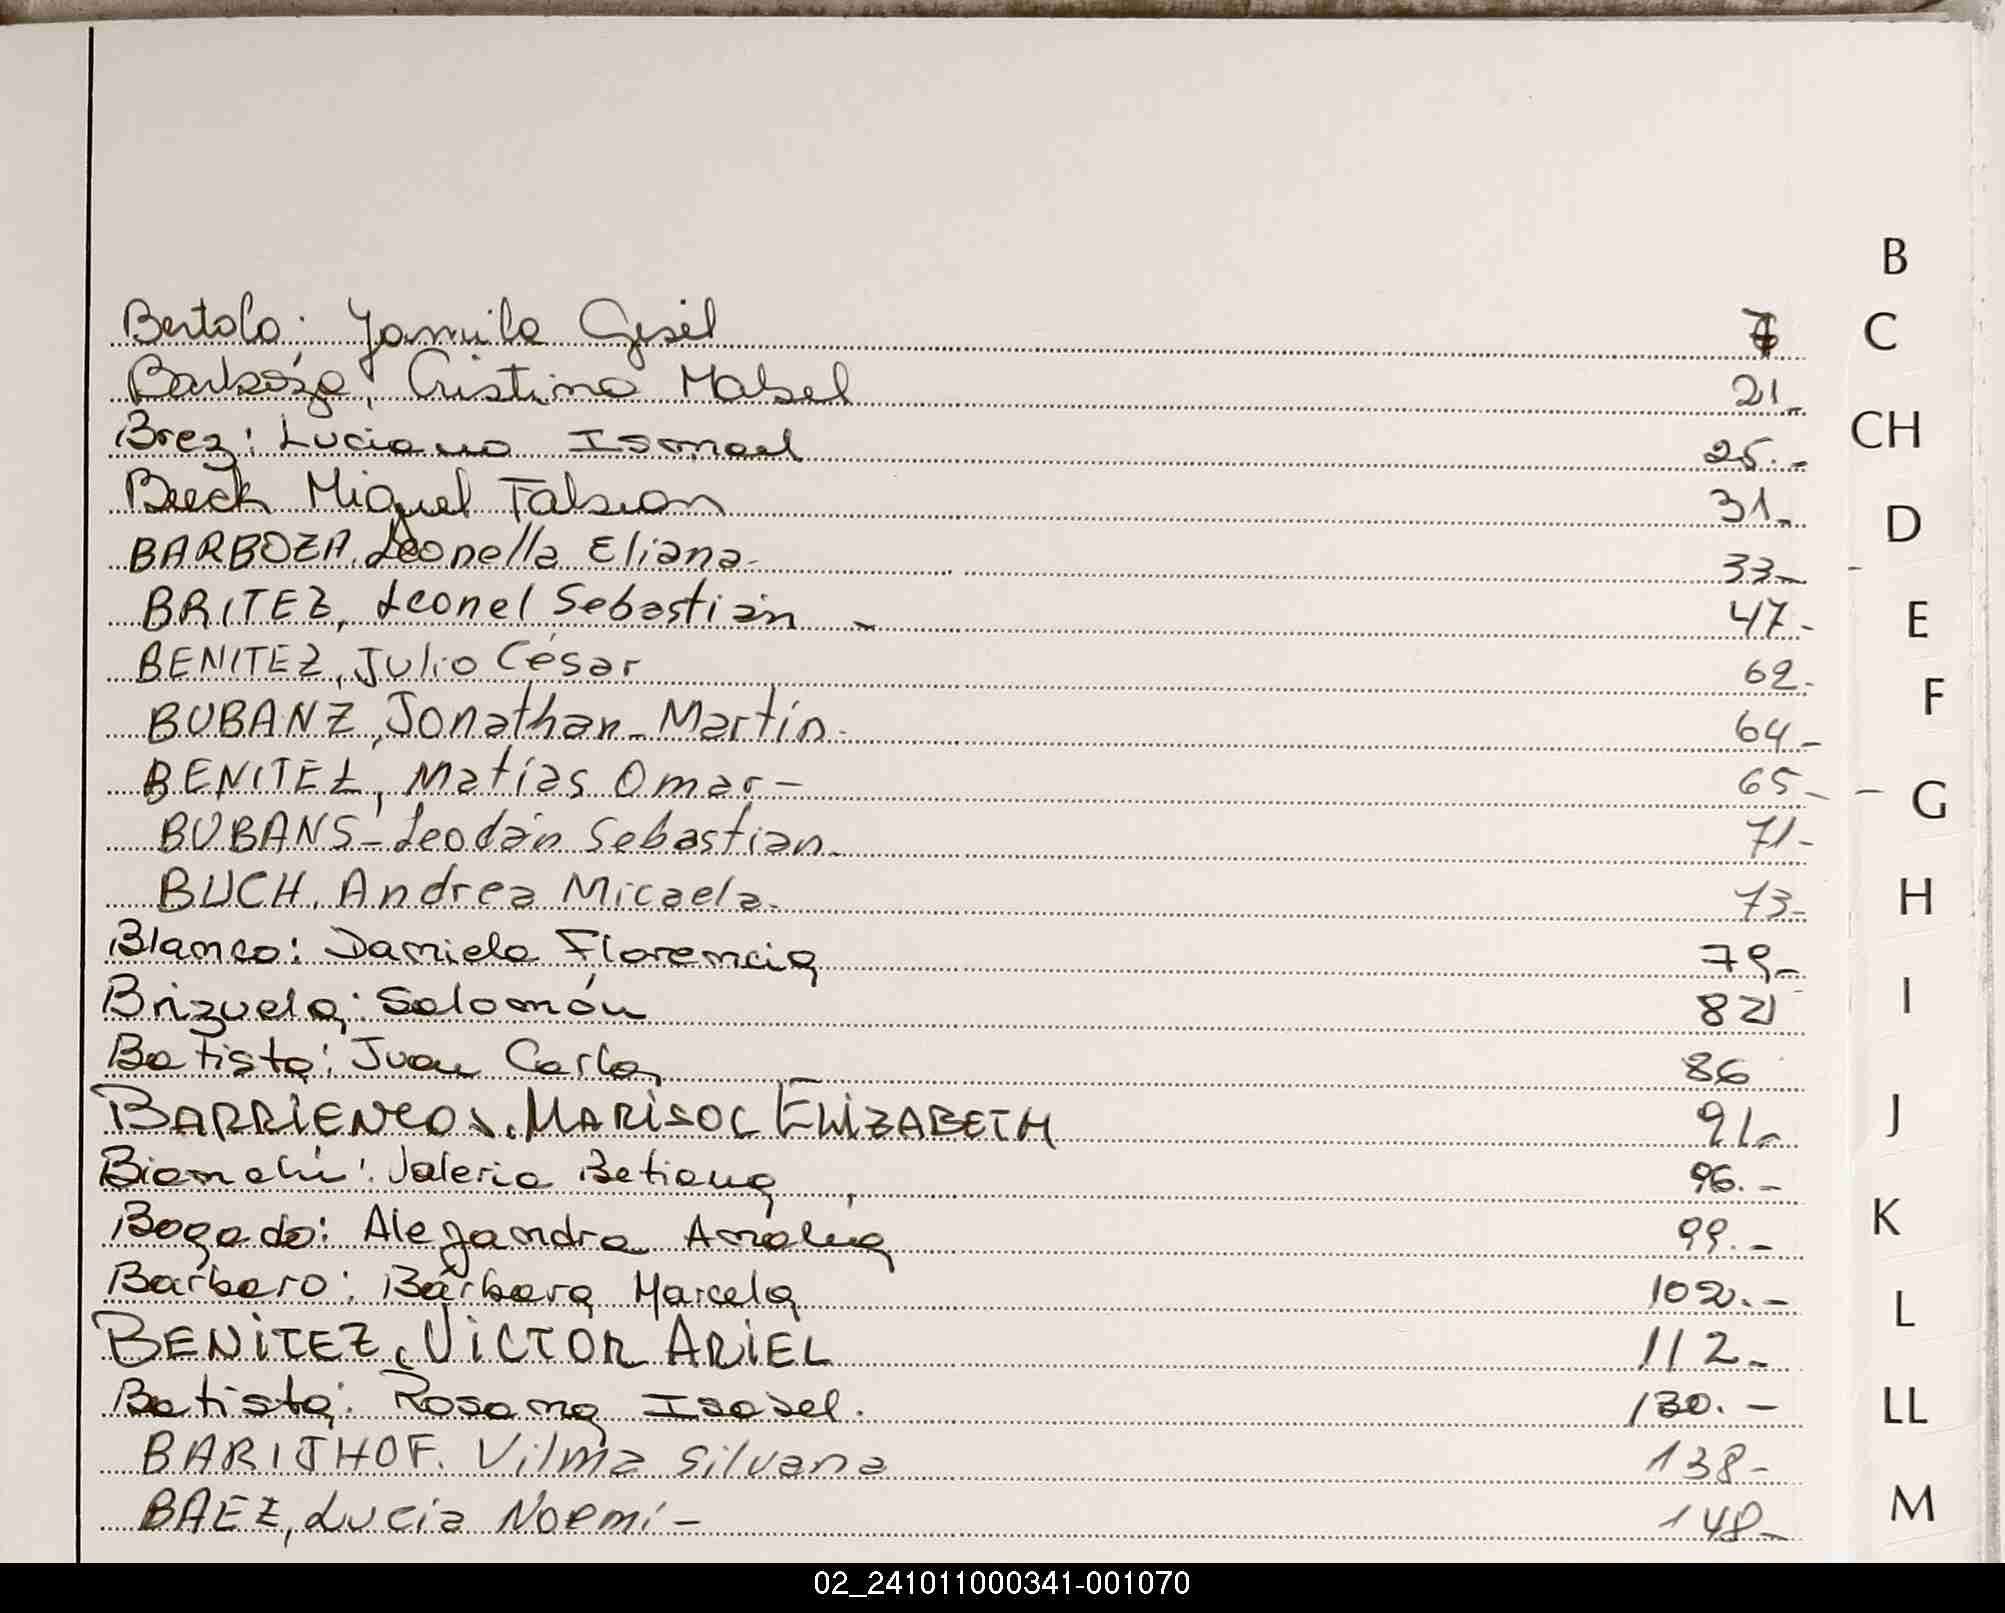 B
Bertolo: Yamila Gisél 7
C
Barboza, Cristina Mabel 21.-
Brez: Luciano Ismael 25.-
CH
Beeck Miguel Fabian 31.-
D
BARBOZA, Leonella Eliana.- 33.-
BRITEZ, Leonel Sebastián - 47.-
E
BENITEZ, Julio César 62.-
F
BUBANZ, Jonathan Martín.- 64.-
BENITEZ, Matías Omar - 65.-
G
BUBANS- Leodán Sebastian.- 71.-
BUCH, Andrea Micaela.- 73.-
H
Blanco: Daniela Florencia 79.-
I
Brizuela: Salomón 82
Batista: Juan Carlos 86
BARRIENTOS, MARISOL ELIZABETH 91.-
J
Bianchi: Valeria Betiana 96.-
Bogado: Alejandra Analía 99.-
K
Barbero: Bárbara Marcela 102.-
L
BENITEZ, VICTOR ARIEL 112.-
Batista: Rosana Isabel. 130.-
LL
BARITHOF. Vilma Silvana 138-
M
BAEZ, Lucia Noemí - 148.-
02_241011000341-001070